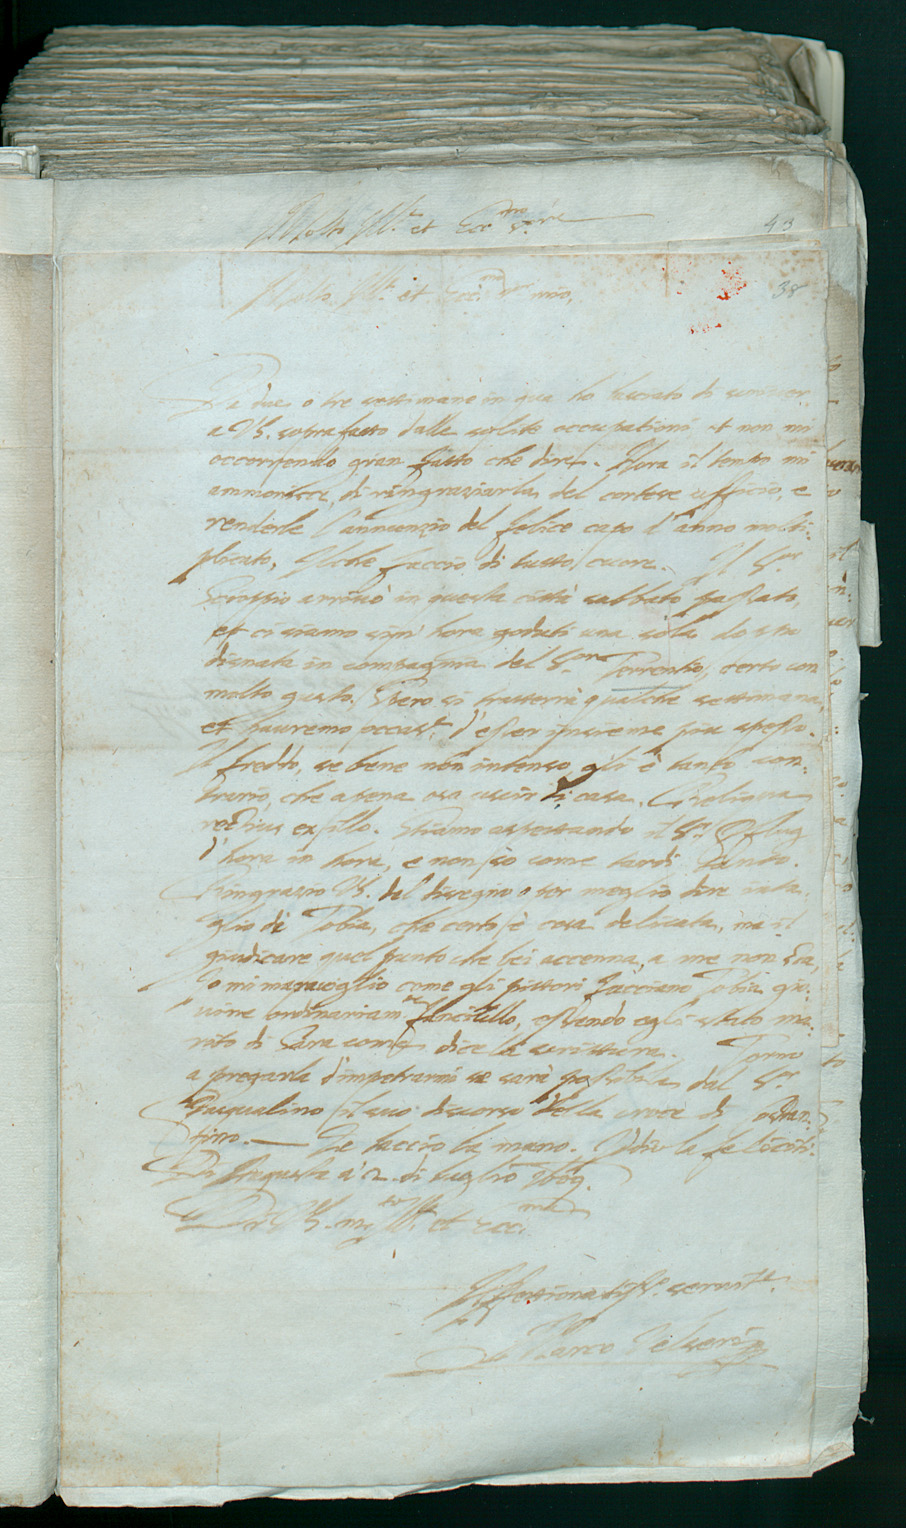 Molto Ill.re et Ecc.mo S.re
43
Molto Ill.re et ecc.mo S.r mio.
38
Da due o tre settimane in qua ho lasciato di scriver
a VS. soprafatto dalle solite occupationi et non mi
occorrendo gran fatto che dire. Hora il tempo mi
ammonisce di ringraziarla del cortese ufficio, e
renderle l'annunzio del felice capo d'anno molti-
plicato, Ilche faccio di tutto cuore. Il S.or
Scioppio arrivò in questa città sabbato passato,
et ci siamo sin' hora goduti una sola
disnata in compagnia del S.or Terrentio, certo con
molto gusto. Spero si tratterrà qualche settimana,
et hauremo occas.e d'esser insieme piu spesso.
Il freddo, se bene non intenso gli è tanto con-
trario, che apena osa uscir di casa.
Stiamo aspettando il S.r Pflug
d'hora in hora, e non sò come tardi tanto.
Ringrazio VS. del disegno o per meglio dire inta-
glio di Tobia, che certo è cosa delicata, ma il
giudicare quel punto che lei accenna, a me non sta,
Io mi maraviglio come gli pittori facciano Tobia gio-
vine ordinariam.te fanciullo, essendo egli stato ma-
rito di Sara come dice la scrittura. Torno
a pregarla d'impetrarmi se sarà possibile dal S.r
Pasqualino il suo discorso della croce di Costan-
tino. — Le baccio la mano. Iddio la feliciti.
Di Augusta à 2. di luglio 1609.
Di VS. molto Ill.re et Ecc.ma
Affettionatiss.o servit.e
Marco Velseri